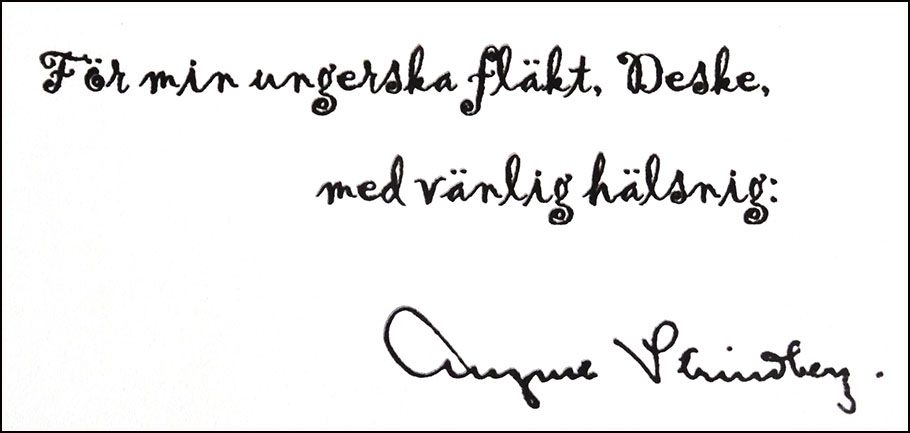 För min ungerska fläkt, Deske,
med vänlig hälsnig:
August Strindberg.